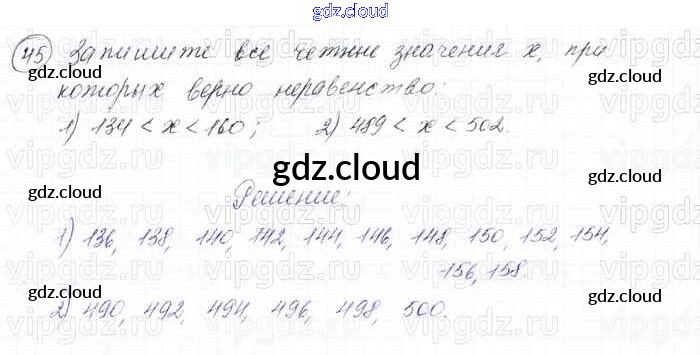 gdz.cloud
45 Запишите все четные значения x, при
которых верно неравенство:
1) 134 < x < 160; 2) 489 < x < 502.
gdz.cloud
Решение:
gdz.cloud gdz.cloud
1) 136, 138, 140, 142, 144, 146, 148, 150, 152, 154,
156, 158.
gdz.cloud gdz.cloud
2) 490, 492, 494, 496, 498, 500.
gdz.cloud